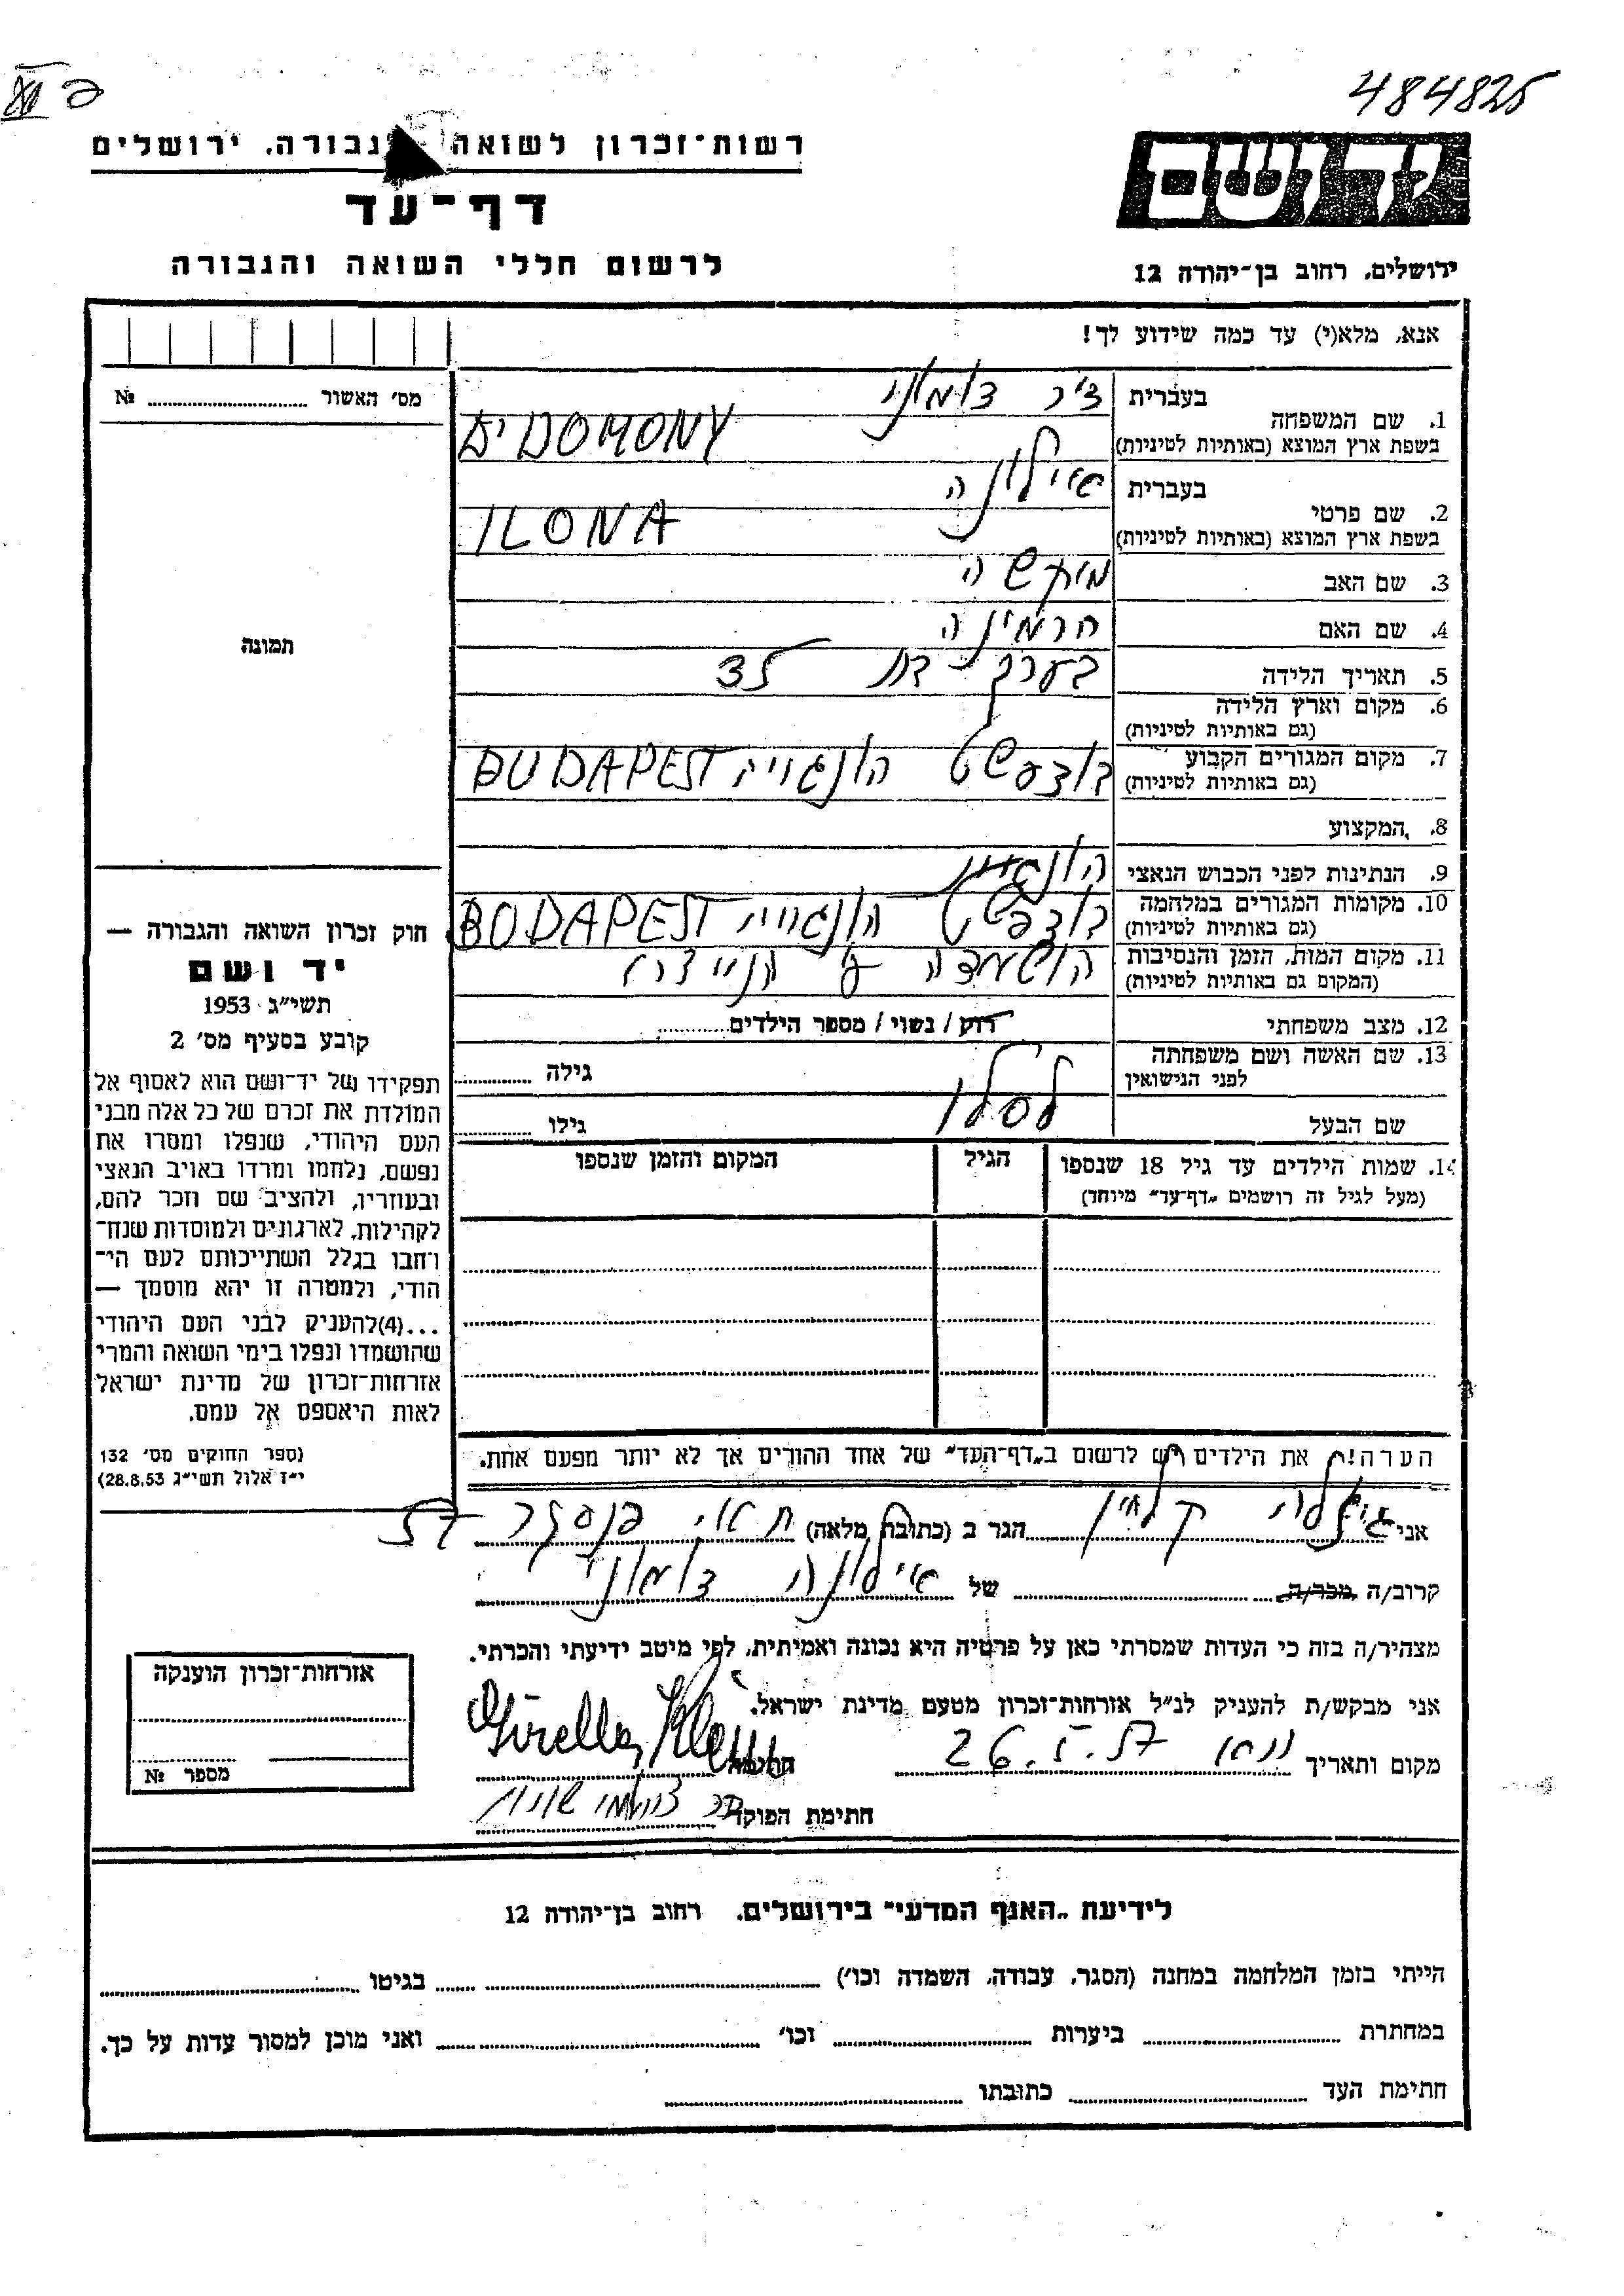 484825
רשות־זכרון לשואה גבורה, ירושלים
יד ושם
דף־עד
לרשום חללי השואה והגבורה
ירושלים, רחוב בן־יהודה 12
אנא, מלא(י) עד כמה שידוע לך!
מס׳ האשור № 
1. שם המשפחה
בעברית דומוני
בשפת ארץ המוצא (באותיות לטיניות) DOMONY
2. שם פרטי
בעברית אילונה
בשפת ארץ המוצא (באותיות לטיניות) ILONA
3. שם האב
4. שם האם הרמינה
5. תאריך הלידה בערך
6. מקום וארץ הלידה
(גם באותיות לטיניות)
7. מקום המגורים הקבוע
(גם באותיות לטיניות) בודפשט הונגריה BUDAPEST
8. המקצוע
9. הנתינות לפני הכבוש הנאצי
10. מקומות המגורים במלחמה
(גם באותיות לטיניות) בודפשט הונגריה BUDAPEST
11. מקום המות, הזמן והנסיבות
(המקום גם באותיות לטיניות) הושמדה
12. מצב משפחתי רוק / נשוי / מספר הילדים
13. שם האשה ושם משפחתה
לפני הנישואין גילה
שם הבעל לסלו גילו
14. שמות הילדים עד גיל 18 שנספו הגיל המקום והזמן שנספו
(מעל לגיל זה רושמים „דף־עד״ מיוחד)
הערה! את הילדים יש לרשום ב„דף־העד״ של אחד ההורים אך לא יותר מפעם אחת.
תמונה
חוק זכרון השואה והגבורה —
יד ושם
תשי״ג 1953
קובע בסעיף מס׳ 2
תפקידו של יד־ושם הוא לאסוף אל
המולדת את זכרם של כל אלה מבני
העם היהודי, שנפלו ומסרו את
נפשם, נלחמו ומרדו באויב הנאצי
ובעוזריו, ולהציב שם וזכר להם,
לקהילות, לארגונים ולמוסדות שנח־
רחבו בגלל השתייכותם לעם הי־
הודי, ולמטרה זו יהא מוסמך —
...(4)להעניק לבני העם היהודי
שהושמדו ונפלו בימי השואה והמרי
אזרחות־זכרון של מדינת ישראל
לאות היאספם אל עמם.
(ספר החוקים מס׳ 132
י״ז אלול תשי״ג 28.8.53)
אני גיזלה קליין הגר ב (כתובת מלאה)
קרוב/ה מכר/ה של אילונה דומוני
מצהיר/ה בזה כי העדות שמסרתי כאן על פרטיה היא נכונה ואמיתית, לפי מיטב ידיעתי והכרתי.
אני מבקש/ת להעניק לנ״ל אזרחות־זכרון מטעם מדינת ישראל.
מקום ותאריך 26.V.57 חתימה Klein
חתימת הפוקד
אזרחות־זכרון הוענקה
מספר №
לידיעת „האגף המדעי״ בירושלים, רחוב בן־יהודה 12
הייתי בזמן המלחמה במחנה (הסגר, עבודה, השמדה וכו׳) בגיטו
במחתרת ביערות וכו׳ ואני מוכן למסור עדות על כך.
חתימת העד כתובתו